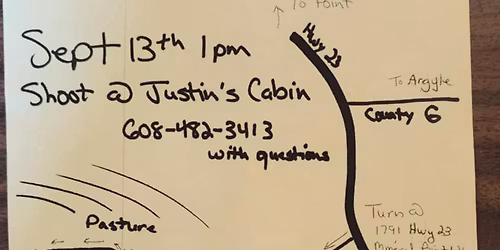 To Point
Hwy 23
Sept 13th 1pm
To Argyle
Shoot @ Justin's Cabin
County G
608-482-3413
with questions
Pasture
Turn @
1791 Hwy 23
Mineral